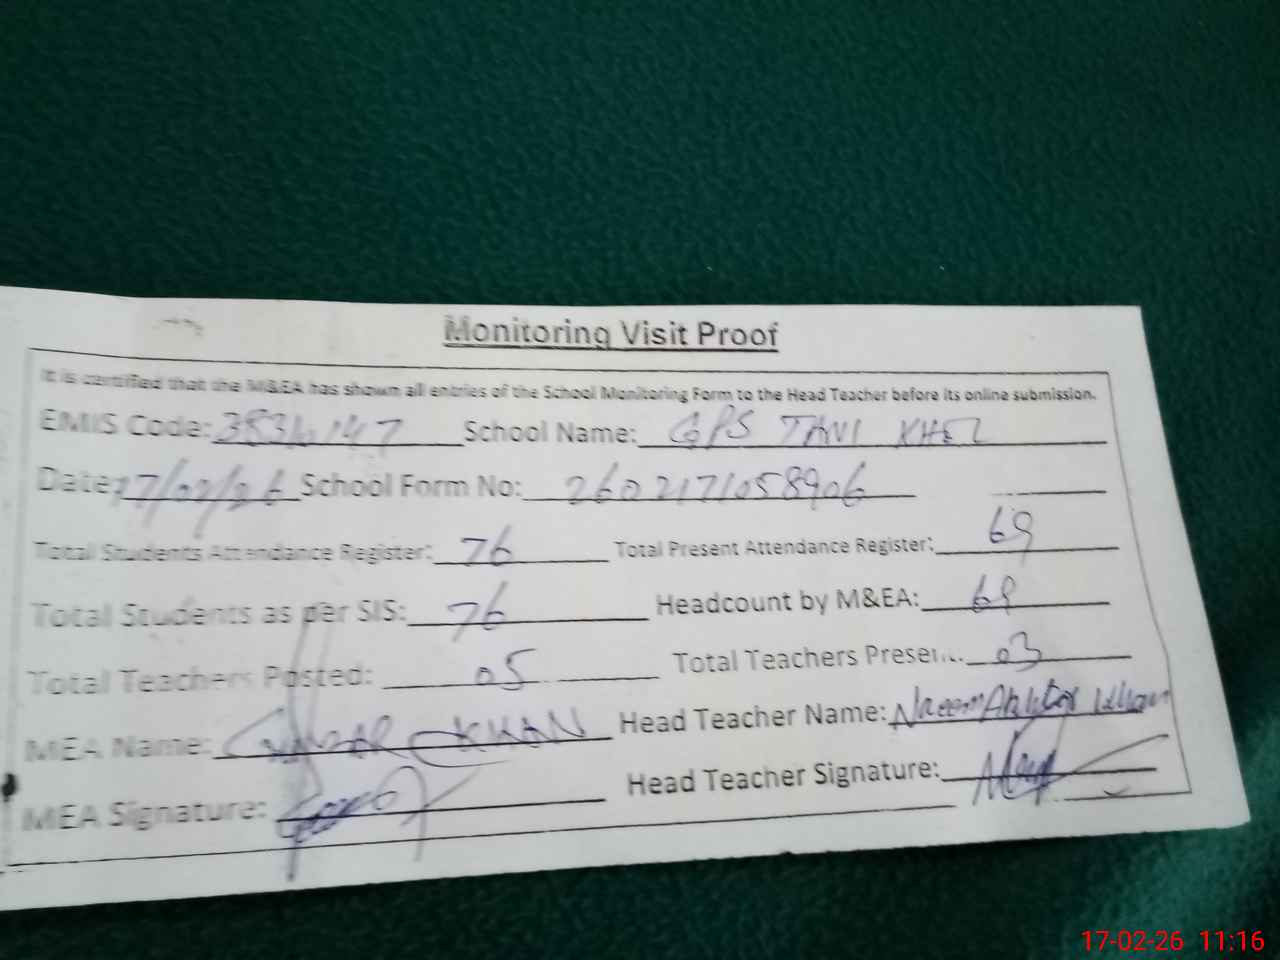 Monitoring Visit Proof
It is certified that the M&EA has shown all entries of the School Monitoring Form to the Head Teacher before its online submission.
EMIS Code: School Name: GPS TANI KHEL
Date: 17/02/26 School Form No: 2602171058906
Total Students Attendance Register: 76 Total Present Attendance Register: 69
Total Students as per SIS: 76 Headcount by M&EA: 69
Total Teachers Posted: 05 Total Teachers Present: 03
MEA Name: KHAN Head Teacher Name: Naeem Akhtar Khan
MEA Signature: Head Teacher Signature:
17-02-26 11:16